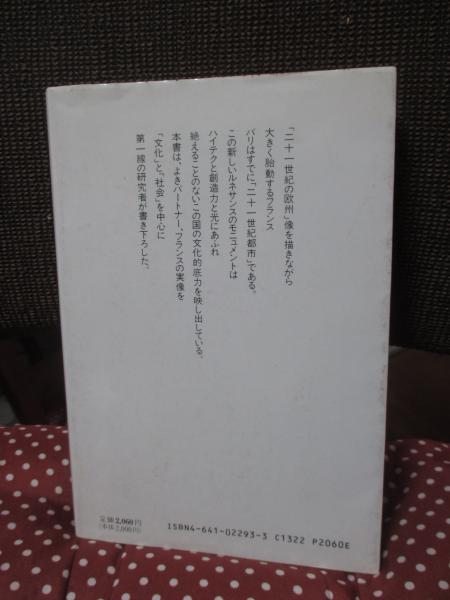 「二十一世紀の欧州」像を描きながら
大きく胎動するフランス
パリはすでに「二十一世紀都市」である。
この新しいルネサンスのモニュメントは
ハイテクと創造力と光にあふれ
絶えることのないこの国の文化的底力を映し出している。
本書は、よきパートナー、フランスの実像を
「文化」と、「社会」を中心に
第一線の研究者が書き下ろした。
定価2,060円
(本体2,000円)
ISBN4-641-02293-3 C1322 P2060E